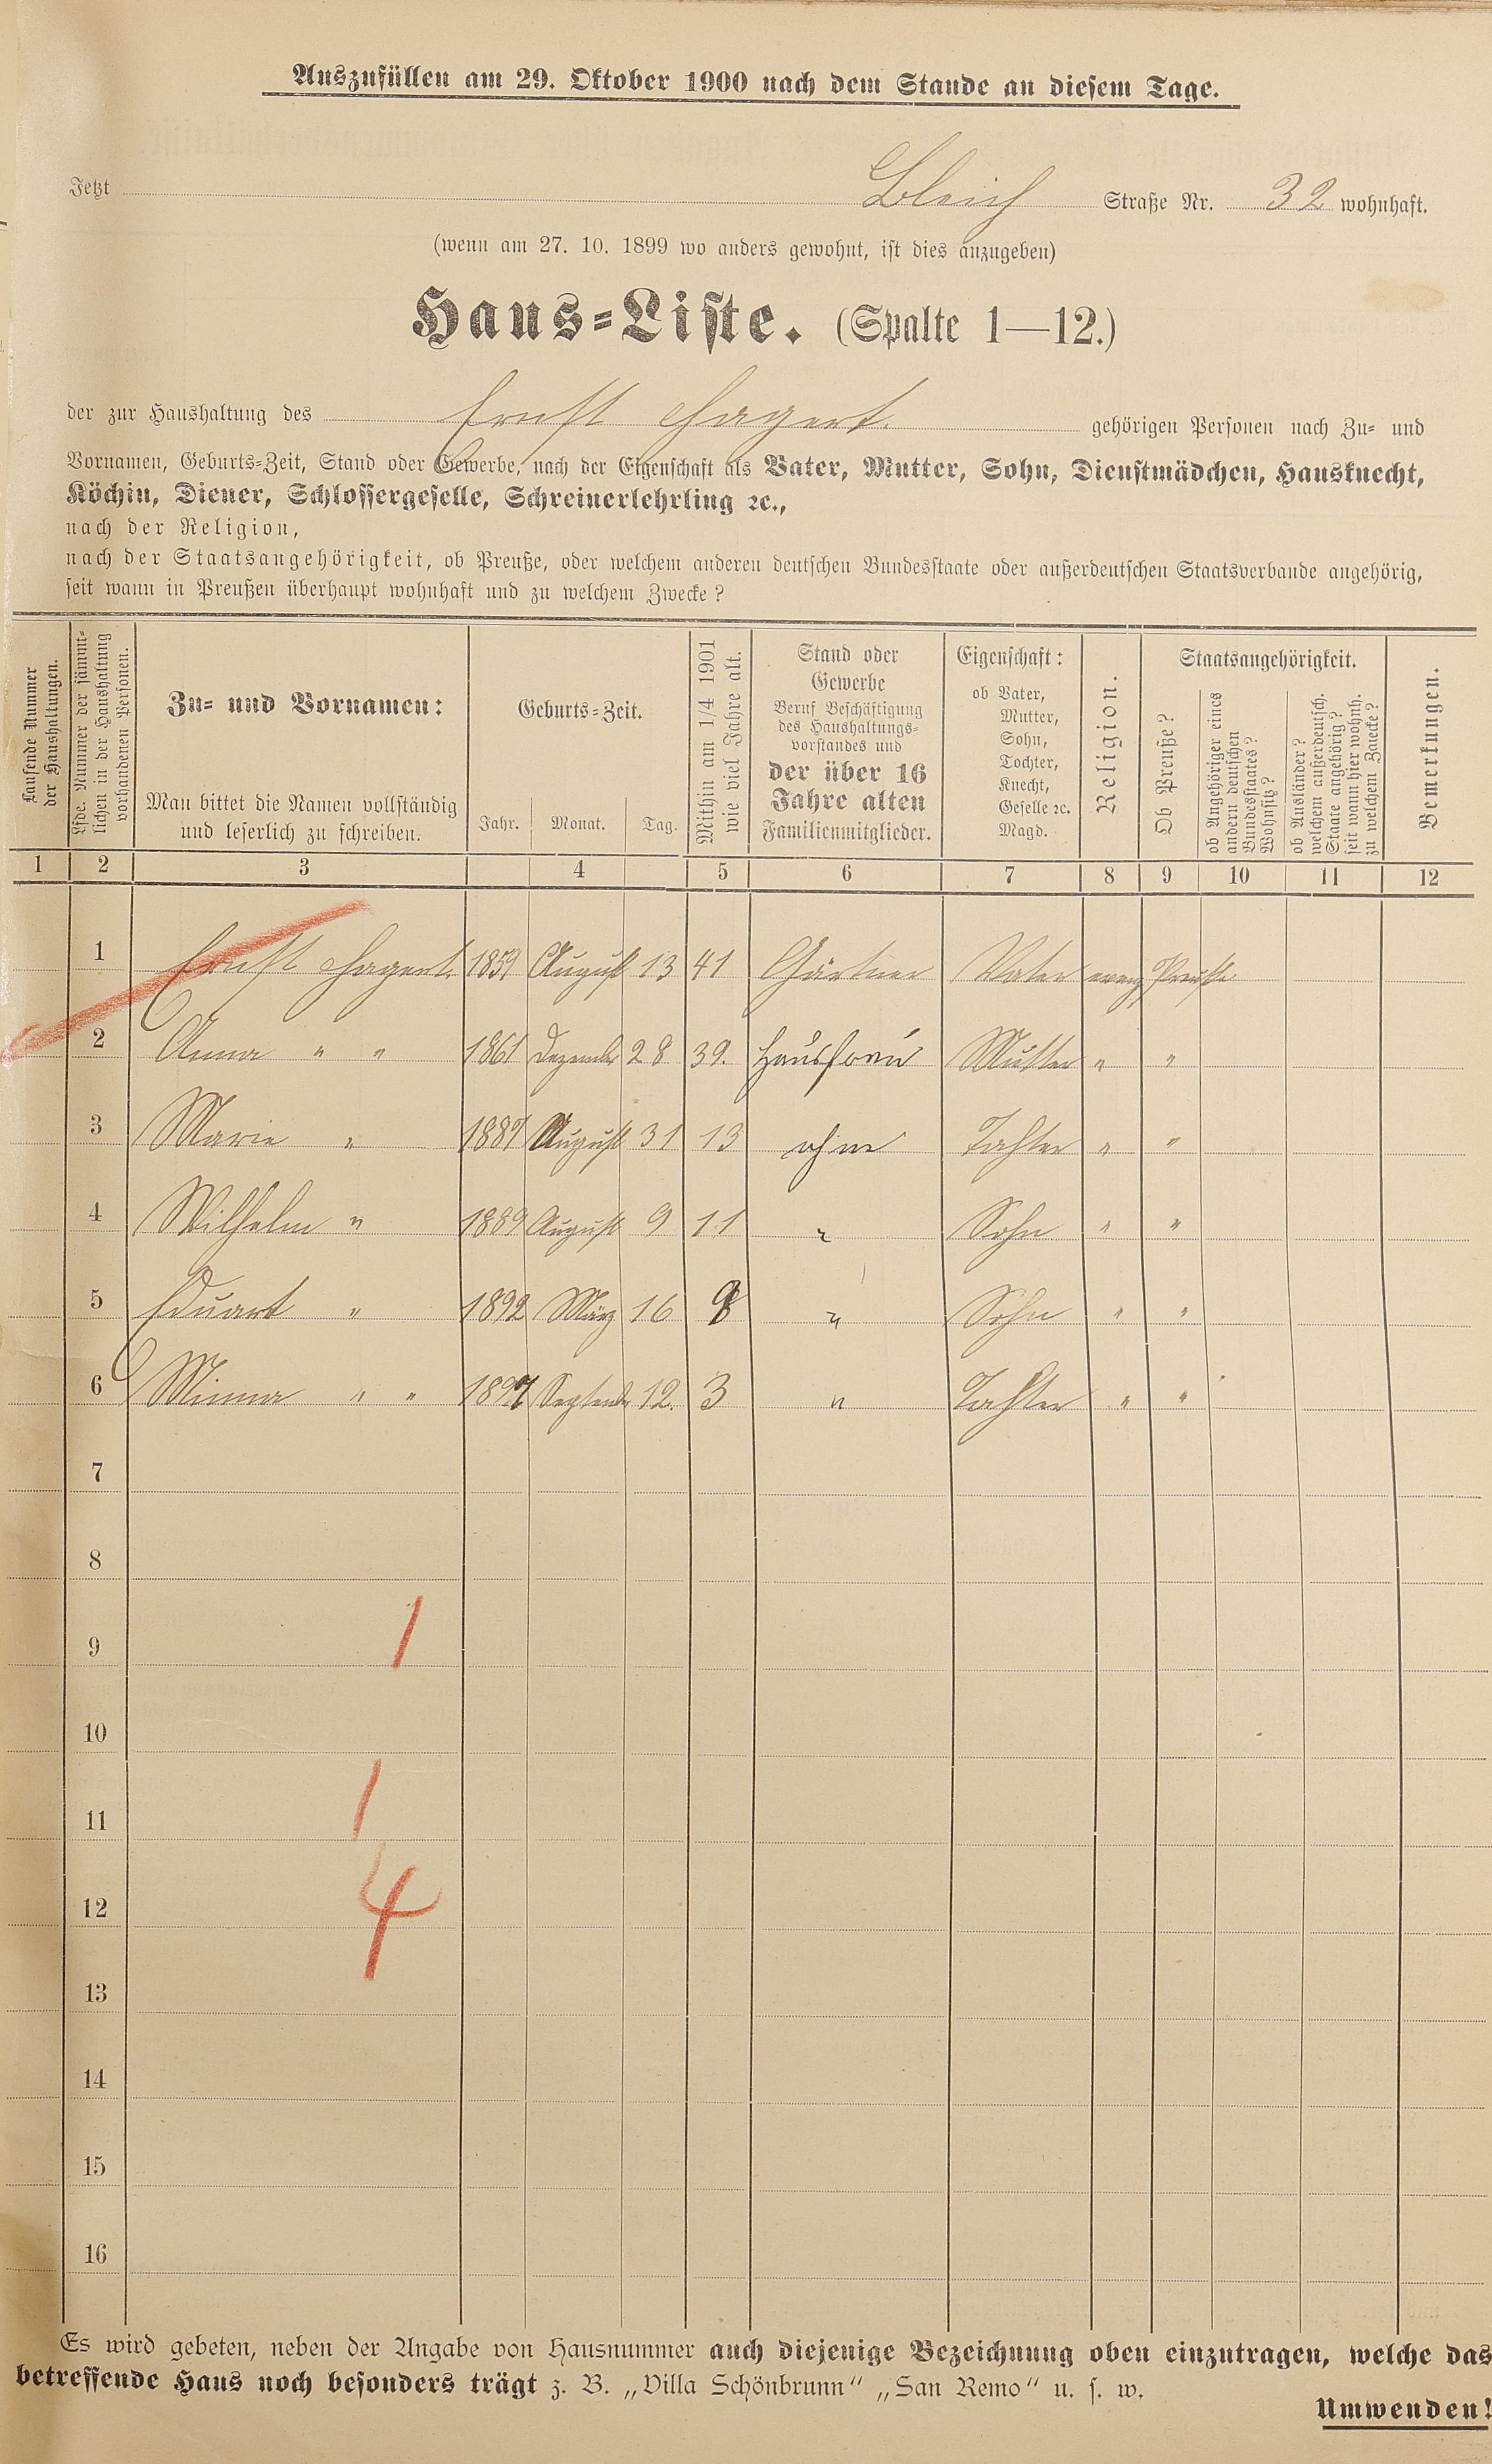 Auszufüllen am 29. Oktober 1900 nach dem Stande an diesem Tage.
Jetzt Bleich Straße Nr. 32 wohnhaft.
(wenn am 27. 10. 1899 wo anders gewohnt, ist dies anzugeben)
Haus-Liste. (Spalte 1—12.)
der zur Haushaltung des Ernst Hagert. gehörigen Personen nach Zu- und
Vornamen, Geburts-Zeit, Stand oder Gewerbe, nach der Eigenschaft als Vater, Mutter, Sohn, Dienstmädchen, Hausknecht,
Köchin, Diener, Schlossergeselle, Schreinerlehrling ꝛc.,
nach der Religion,
nach der Staatsangehörigkeit, ob Preuße, oder welchem anderen deutschen Bundesstaate oder außerdeutschen Staatsverbande angehörig,
seit wann in Preußen überhaupt wohnhaft und zu welchem Zwecke?
Laufende Nummer
der Haushaltungen.
Lfde. Nummer der sämmt-
lichen in der Haushaltung
vorhandenen Personen.
Zu- und Vornamen:
Man bittet die Namen vollständig
und leserlich zu schreiben.
Geburts-Zeit.
Jahr. Monat. Tag.
Mithin am 1/4 1901
wie viel Jahre alt.
Stand oder
Gewerbe
Beruf Beschäftigung
des Haushaltungs-
vorstandes und
der über 16
Jahre alten
Familienmitglieder.
Eigenschaft:
ob Vater,
Mutter,
Sohn,
Tochter,
Knecht,
Geselle ꝛc.
Magd.
Religion.
Staatsangehörigkeit.
Ob Preuße?
ob Angehöriger eines
andern deutschen
Bundesstaates?
Wohnsitz?
ob Ausländer?
welchem außerdeutsch.
Staate angehörig?
seit wann hier wohnh.
zu welchem Zwecke?
Bemerkungen.
1 2 3 4 5 6 7 8 9 10 11 12
1 Ernst Hagert. 1859 August 13 41 Gärtner Vater evang Preuße
2 Anna " " 1861 Dezember 28 39. Hausfrau Mutter " "
3 Marie " 1887 August 31 13 ohne Tochter " "
4 Wilhelm " 1889 August 9 11 " Sohn " "
5 Eduart " 1892 März 16 " Sohn " "
6 Minna " " 1897 September 12. 3 " Tochter " "
7
8
9 1
10
11 1
12 4
13
14
15
16
Es wird gebeten, neben der Angabe von Hausnummer auch diejenige Bezeichnung oben einzutragen, welche das
betreffende Haus noch besonders trägt z. B. „Villa Schönbrunn“ „San Remo“ u. s. w.
Umwenden!